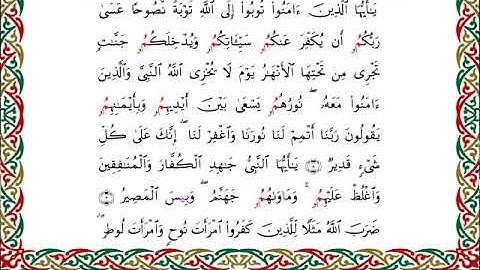 يَٰٓأَيُّهَا ٱلَّذِينَ ءَامَنُواْ تُوبُوٓاْ إِلَى ٱللَّهِ تَوْبَةً نَّصُوحًا عَسَىٰ
رَبُّكُمُۥ أَن يُكَفِّرَ عَنكُمُۥ سَيِّـَٔاتِكُمُۥ وَيُدْخِلَكُمُۥ جَنَّٰتٍ
تَجْرِى مِن تَحْتِهَا ٱلْأَنْهَٰرُ يَوْمَ لَا يُخْزِى ٱللَّهُ ٱلنَّبِىَّ وَٱلَّذِينَ
ءَامَنُواْ مَعَهُۥ ۖ نُورُهُمُۥ يَسْعَىٰ بَيْنَ أَيْدِيهِمُۥ وَبِأَيْمَٰنِهِمُۥ
يَقُولُونَ رَبَّنَآ أَتْمِمْ لَنَا نُورَنَا وَٱغْفِرْ لَنَآ ۖ إِنَّكَ عَلَىٰ كُلِّ
شَىْءٍ قَدِيرٌ ٨ يَٰٓأَيُّهَا ٱلنَّبِىُّ جَٰهِدِ ٱلْكُفَّارَ وَٱلْمُنَٰفِقِينَ
وَٱغْلُظْ عَلَيْهِمُۥ ۚ وَمَأْوَىٰهُمُۥ جَهَنَّمُ ۖ وَبِيسَ ٱلْمَصِيرُ ٩
ضَرَبَ ٱللَّهُ مَثَلًا لِّلَّذِينَ كَفَرُواْ ٱمْرَأَتَ نُوحٍ وَٱمْرَأَتَ لُوطٍ ۖ